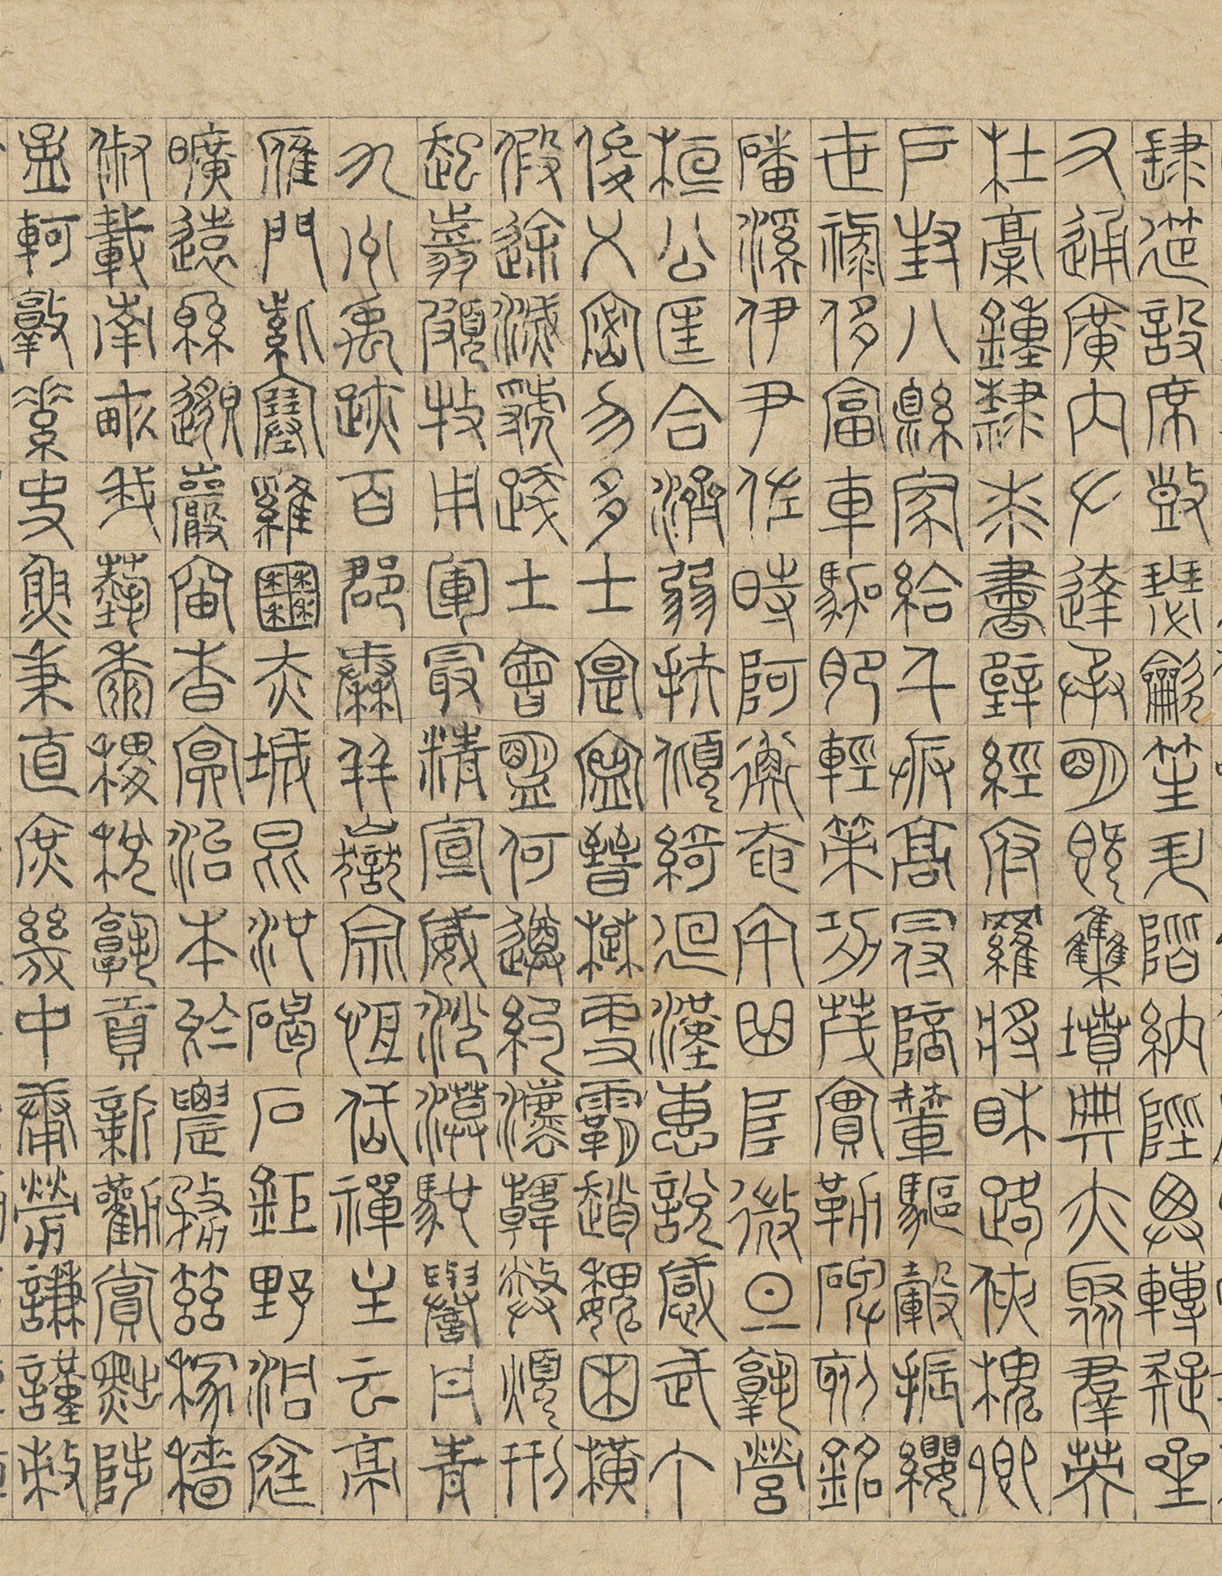 肆筵設席鼓瑟吹笙升階納陛弁轉疑星
右通廣內左達承明既集墳典亦聚群英
杜稾鍾隸漆書壁經府羅將相路俠槐卿
戶封八縣家給千兵高冠陪輦驅轂振纓
世祿侈富車駕肥輕策功茂實勒碑刻銘
磻溪伊尹佐時阿衡奄宅曲阜微旦孰營
桓公匡合濟弱扶傾綺迴漢惠說感武丁
俊乂密勿多士寔寧晉楚更霸趙魏困橫
假途滅虢踐土會盟何遵約法韓弊煩刑
起翦頗牧用軍最精宣威沙漠馳譽丹青
九州禹跡百郡秦并嶽宗恆岱禪主云亭
雁門紫塞雞田赤城昆池碣石鉅野洞庭
曠遠綿邈巖岫杳冥治本於農務茲稼穡
俶載南畝我藝黍稷稅熟貢新勸賞黜陟
孟軻敦素史魚秉直庶幾中庸勞謙謹敕